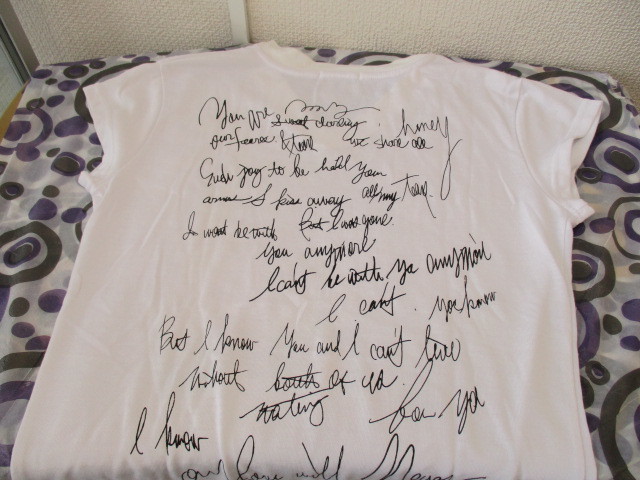 You are my
sweet darling. honey
our & tear we share
Ever joy to be hold your
arms I kiss away all my tear.
I want be with But I was gone.
you anymore
I can't be with ya anymore
I can't. you know
But I know You and I can't live
without both of ya.
waiting for ya
I know
our love will